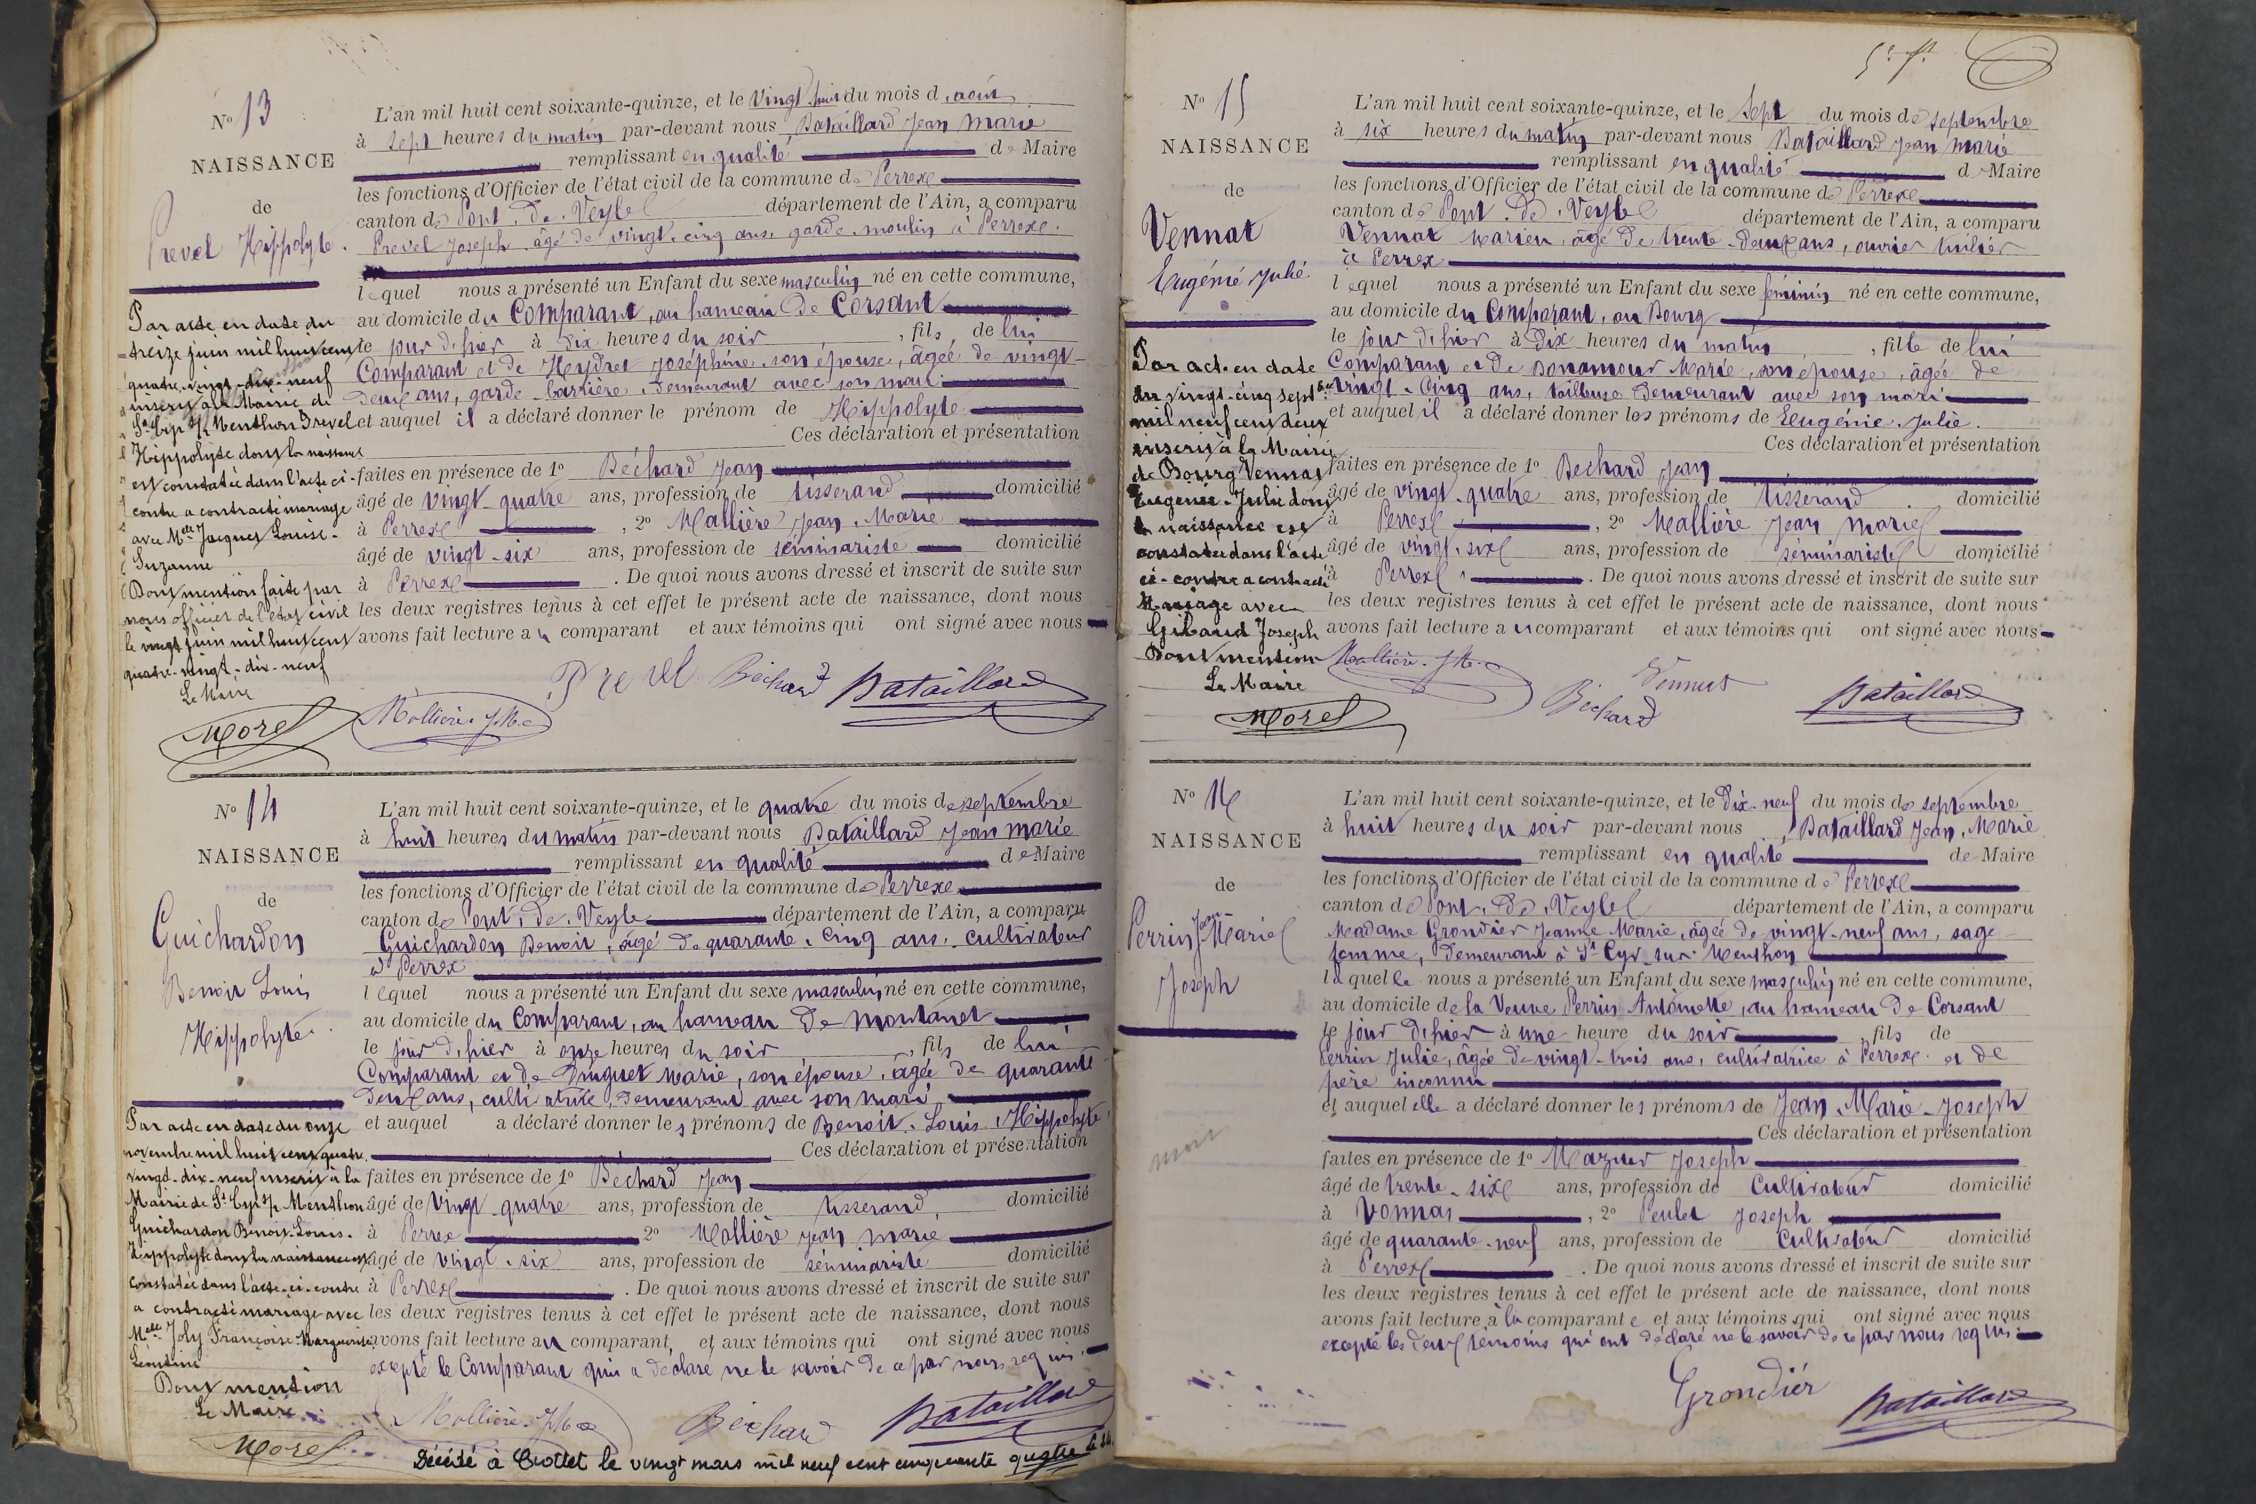 No 13
NAISSANCE
de
Prevel Hippolyte.
Par acte en date du
treize juin mil huit cent
quatre-vingt-dix-neuf
inscrit à la Mairie de
St Cyr s/ Menthon Prevel
Hippolyte dont la naissance
est constatée dans l'acte ci-
contre a contracté mariage
avec Melle Jacquet Louise-
Suzanne
Dont mention faite par
nous officier de l'état civil
le vingt juin mil huit cent
quatre-vingt-dix-neuf
Le Maire
Morel
L'an mil huit cent soixante-quinze, et le vingt huit du mois d'août
à sept heures du matin par-devant nous Bataillard Jean Marie
remplissant en qualité de Maire
les fonctions d'Officier de l'état civil de la commune de Perrexe
canton de Pont-de-Veyle département de l'Ain, a comparu
Prevel Joseph âgé de vingt-cinq ans, garde-moulin à Perrexe.
lequel nous a présenté un Enfant du sexe masculin né en cette commune,
au domicile du Comparant, au hameau de Corsant
le jour d'hier à dix heures du soir, fils de lui
Comparant et de Heydret Joséphine son épouse, âgée de vingt-
deux ans, garde-barrière, demeurant avec son mari
et auquel il a déclaré donner le prénom de Hippolyte
Ces déclaration et présentation
faites en présence de 1o Béchard Jean
âgé de vingt-quatre ans, profession de tisserand domicilié
à Perrexe, 2o Mallière Jean-Marie
âgé de vingt-six ans, profession de séminariste domicilié
à Perrexe. De quoi nous avons dressé et inscrit de suite sur
les deux registres tenus à cet effet le présent acte de naissance, dont nous
avons fait lecture au comparant et aux témoins qui ont signé avec nous
Prevel Béchard Bataillard
Mollière J.M.
No 14
NAISSANCE
de
Guichardon
Benoit Louis
Hippolyte.
Par acte en date du onze
novembre mil huit cent quatre-
vingt-dix-neuf inscrit à la
Mairie de St Cyr s/ Menthon
Guichardon Benoit-Louis-
Hippolyte dont la naissance est
constatée dans l'acte ci-contre
a contracté mariage avec
Melle Joly Françoise Marguerite
Léontine
Dont mention
Le Maire
Morel
L'an mil huit cent soixante-quinze, et le quatre du mois de septembre
à huit heures du matin par-devant nous Bataillard Jean Marie
remplissant en qualité de Maire
les fonctions d'Officier de l'état civil de la commune de Perrexe
canton de Pont-de-Veyle département de l'Ain, a comparu
Guichardon Benoit, âgé de quarante-cinq ans, cultivateur
à Perrex
lequel nous a présenté un Enfant du sexe masculin né en cette commune,
au domicile du Comparant, au hameau de Montanet
le jour d'hier à onze heures du soir, fils de lui
Comparant et de Druguet Marie, son épouse, âgée de quarante
deux ans, cultivatrice, demeurant avec son mari,
et auquel a déclaré donner les prénoms de Benoit-Louis-Hippolyte
Ces déclaration et présentation
faites en présence de 1o Béchard Jean
âgé de vingt-quatre ans, profession de tisserand, domicilié
à Perrexe 2o Mollière Jean Marie
âgé de vingt-six ans, profession de séminariste domicilié
à Perrexe. De quoi nous avons dressé et inscrit de suite sur
les deux registres tenus à cet effet le présent acte de naissance, dont nous
avons fait lecture au comparant, et aux témoins qui ont signé avec nous
excepté le Comparant qui a déclaré ne le savoir de ce par nous requis.
Mollière J.M. Béchard Bataillard
Décédé à Crottet le vingt mars mil neuf cent cinquante quatre
No 15
NAISSANCE
de
Vennat
Eugénie Julie.
Par acte en date
du vingt-cinq septbre
mil neuf cent deux
inscrit à la Mairie
de Bourg Vennat
Eugénie-Julie dont
la naissance est
constatée dans l'acte
ci-contre a contracté
Mariage avec
Giband Joseph
Dont mention
Le Maire
Morel
L'an mil huit cent soixante-quinze, et le Sept du mois de septembre
à six heures du matin par-devant nous Bataillard Jean Marie
remplissant en qualité de Maire
les fonctions d'Officier de l'état civil de la commune de Perrexe
canton de Pont-de-Veyle département de l'Ain, a comparu
Vennat Marien, âgé de trente-deux ans, ouvrier tuilier
à Perrex
lequel nous a présenté un Enfant du sexe féminin né en cette commune,
au domicile du Comparant, au Bourg
le jour d'hier à Dix heures du matin, fille de lui
Comparant et de Bonamour Marie, son épouse, âgée de
vingt-cinq ans, tailleuse demeurant avec son mari
et auquel il a déclaré donner les prénoms de Eugénie-Julie.
Ces déclaration et présentation
faites en présence de 1o Béchard Jean
âgé de vingt-quatre ans, profession de tisserand. domicilié
à Perrexe, 2o Mallière Jean Marie
âgé de vingt-six ans, profession de séminariste domicilié
à Perrexe. De quoi nous avons dressé et inscrit de suite sur
les deux registres tenus à cet effet le présent acte de naissance, dont nous
avons fait lecture au comparant et aux témoins qui ont signé avec nous
Mollière J.M. Vennat
Béchard Bataillard
No 16
NAISSANCE
de
Perrin Jean Marie
Joseph
mort
L'an mil huit cent soixante-quinze, et le Dix-neuf du mois de septembre
à huit heures du soir par-devant nous, Bataillard Jean-Marie
remplissant en qualité de Maire
les fonctions d'Officier de l'état civil de la commune de Perrexe
canton de Pont-de-Veyle département de l'Ain, a comparu
Madame Grondier Jeanne Marie, âgée de vingt-neuf ans, sage-
femme, demeurant à St Cyr-sur-Menthon
laquelle nous a présenté un Enfant du sexe masculin né en cette commune,
au domicile de la Veuve Perrin Antoinette, au hameau de Corsant
le jour d'hier à une heure du soir, fils de
Perrin Julie, âgée de vingt-trois ans, cultivatrice à Perrexe et de
père inconnu
et auquel elle a déclaré donner les prénoms de Jean-Marie-Joseph
Ces déclaration et présentation
faites en présence de 1o Mazuer Joseph
âgé de trente-six ans, profession de Cultivateur domicilié
à Vonnas, 2o Peulet Joseph
âgé de quarante-neuf ans, profession de Cultivateur domicilié
à Perrexe. De quoi nous avons dressé et inscrit de suite sur
les deux registres tenus à cet effet le présent acte de naissance, dont nous
avons fait lecture à la comparante et aux témoins qui ont signé avec nous
excepté les deux témoins qui ont déclaré ne le savoir de ce par nous requis.
Grondier Bataillard